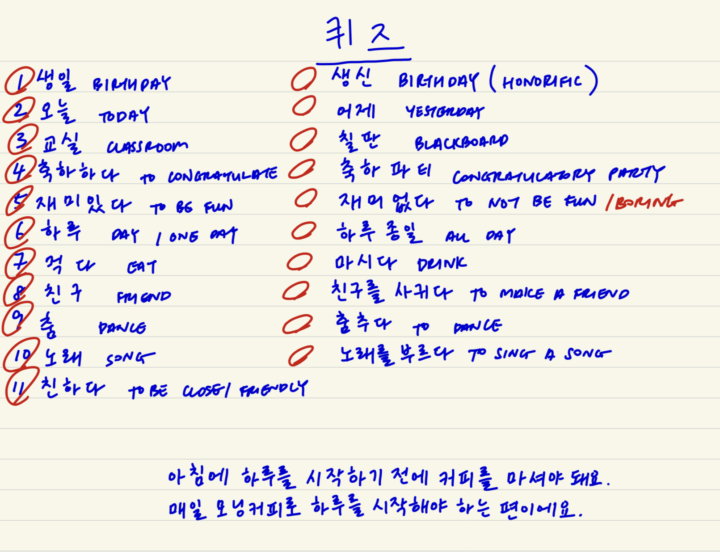 퀴즈
1 생일 BIRTHDAY 생신 BIRTHDAY (HONORIFIC)
2 오늘 TODAY 어제 YESTERDAY
3 교실 CLASSROOM 칠판 BLACKBOARD
4 축하하다 TO CONGRATULATE 축하 파티 CONGRATULATORY PARTY
5 재미있다 TO BE FUN 재미없다 TO NOT BE FUN /BORING
6 하루 DAY / ONE DAY 하루 종일 ALL DAY
7 먹다 EAT 마시다 DRINK
8 친구 FRIEND 친구를 사귀다 TO MAKE A FRIEND
9 춤 DANCE 춤추다 TO DANCE
10 노래 SONG 노래를 부르다 TO SING A SONG
11 친하다 TO BE CLOSE / FRIENDLY
아침에 하루를 시작하기 전에 커피를 마셔야 돼요.
매일 모닝커피로 하루를 시작해야 하는 편이에요.